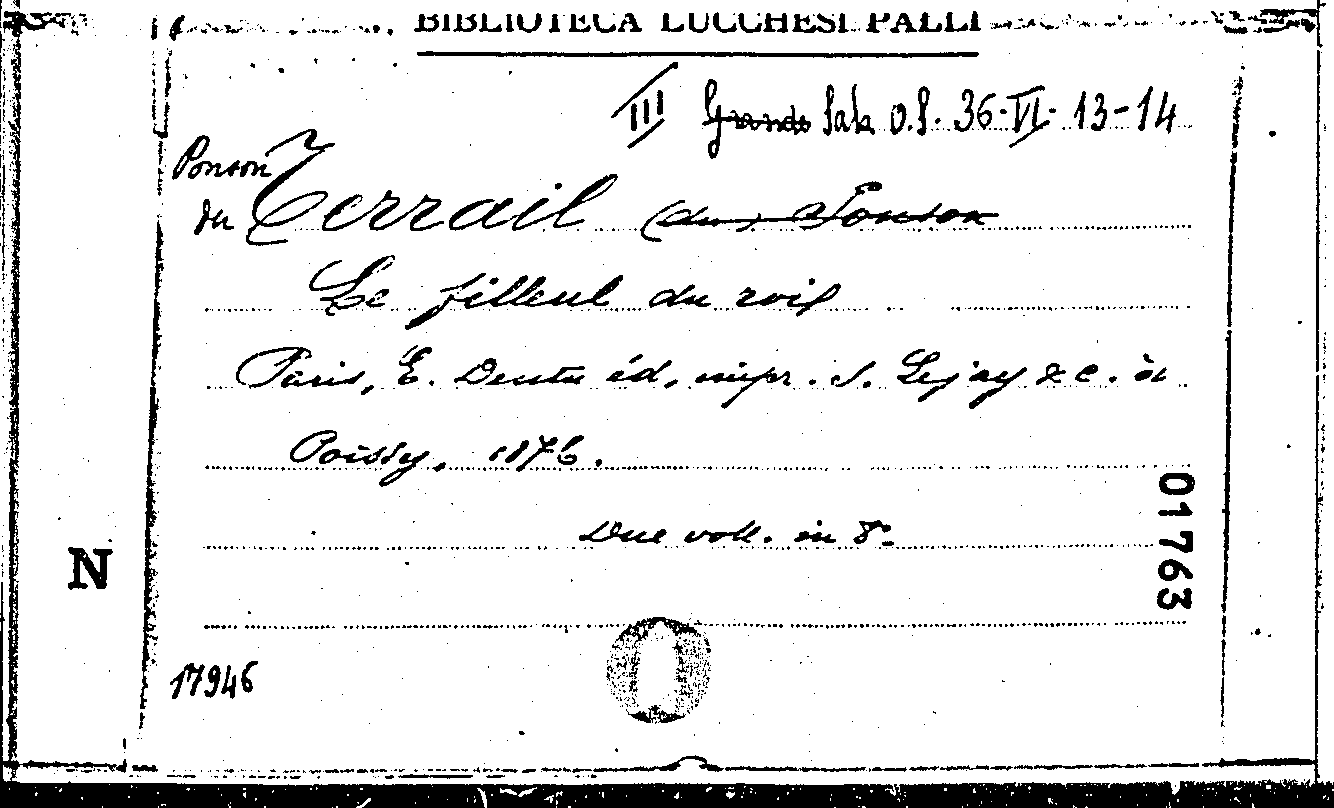 BIBLIOTECA LUCCHESI PALLI
III Grande Sala O.S. 36-VI-13-14
Ponson
du Terrail (du) Ponson
Le filleul du roi
Paris, E. Dentu éd., impr. S. Lejay & C. à
Poissy, 1876.
Due voll. in 8º
01763
N
17946